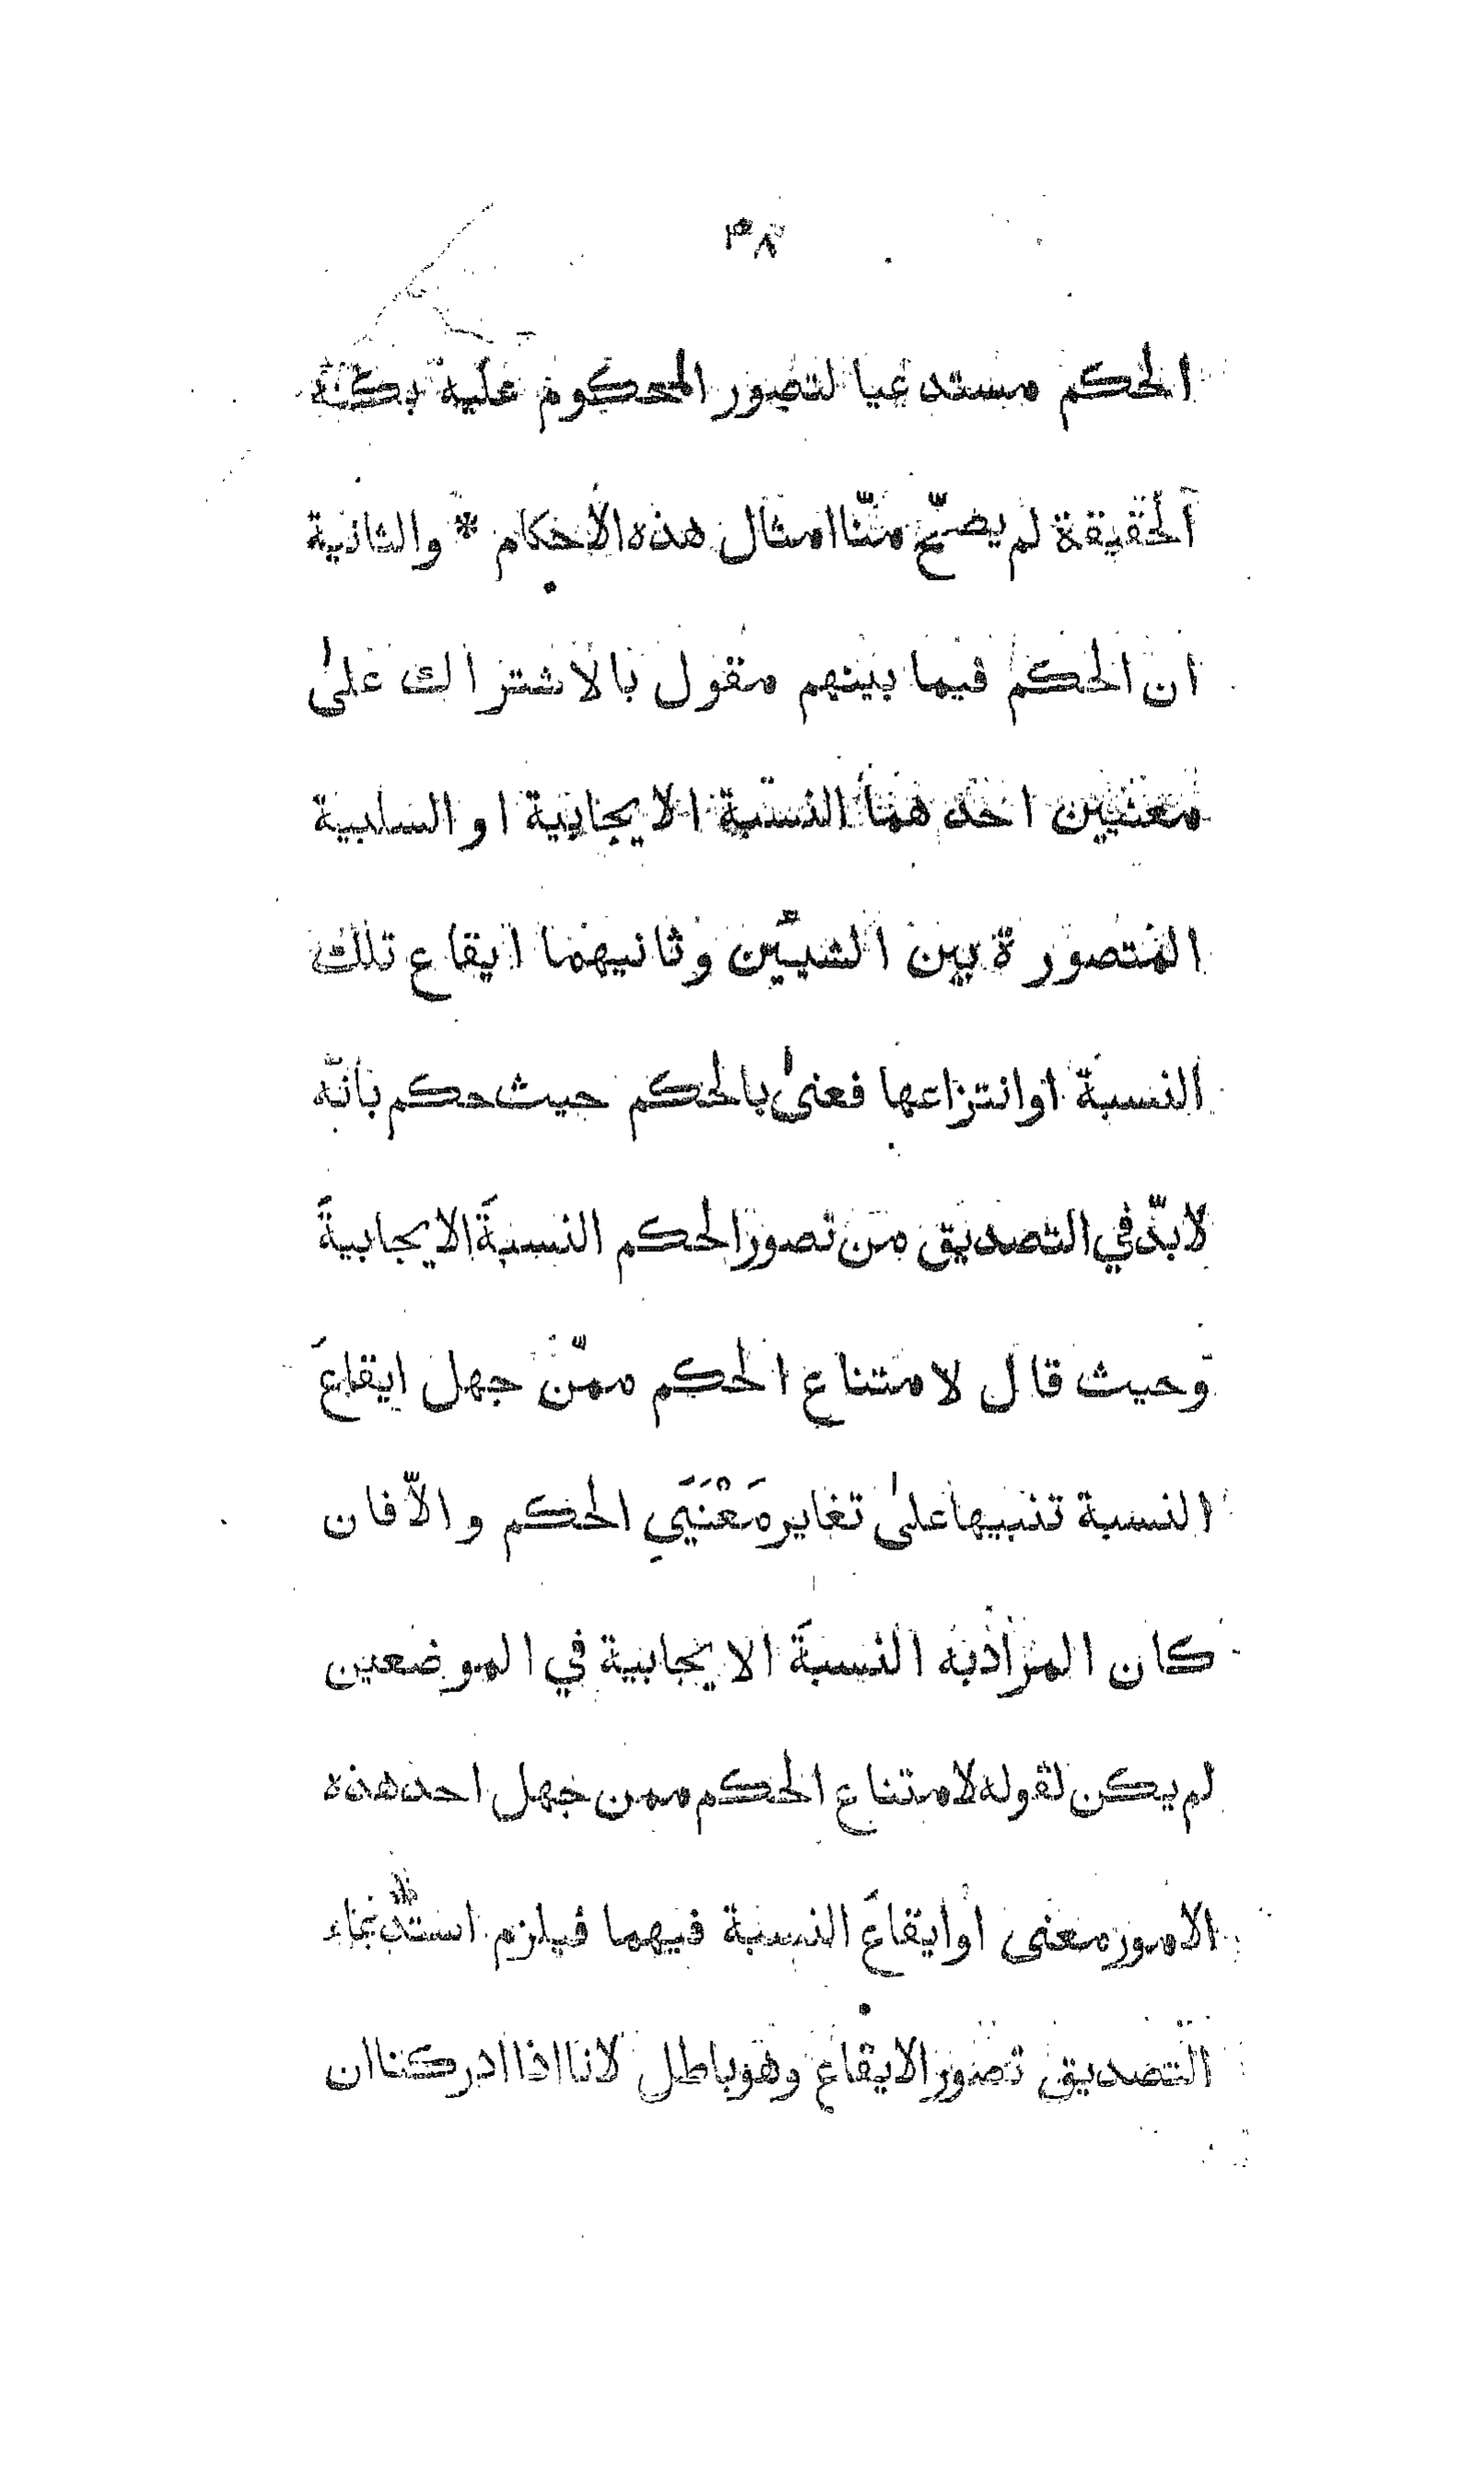 ٣٨
الحكم مستدعيا لتصور المحكوم عليه بكنه
الحقيقة لم يصحّ منّا امثال هذه الأحكام * والثانية
ان الحكم فيما بينهم مقول بالاشتراك علىٰ
معنيين احدهما النسبة الايجابية او السلبية
المتصورة بين الشيئين وثانيهما ايقاع تلك
النسبة او انتزاعها فعنىٰ بالحكم حيث حكم بانّه
لا بدّ في التصديق من تصور الحكم النسبةَ الايجابيةَ
وحيث قال لامتناع الحكم ممّن جهل ايقاعَ
النسبة تنبيها علىٰ تغاير مَعْنَيَيِ الحكم والّا فان
كان المراد به النسبةَ الايجابية في الموضعين
لم يكن لقوله لامتناع الحكم ممن جهل احد هذه
الامور معنى او ايقاعَ النسبة فيهما فيلزم استدعاء
التصديق تصور الايقاع وهو باطل لانا اذا ادركنا ان